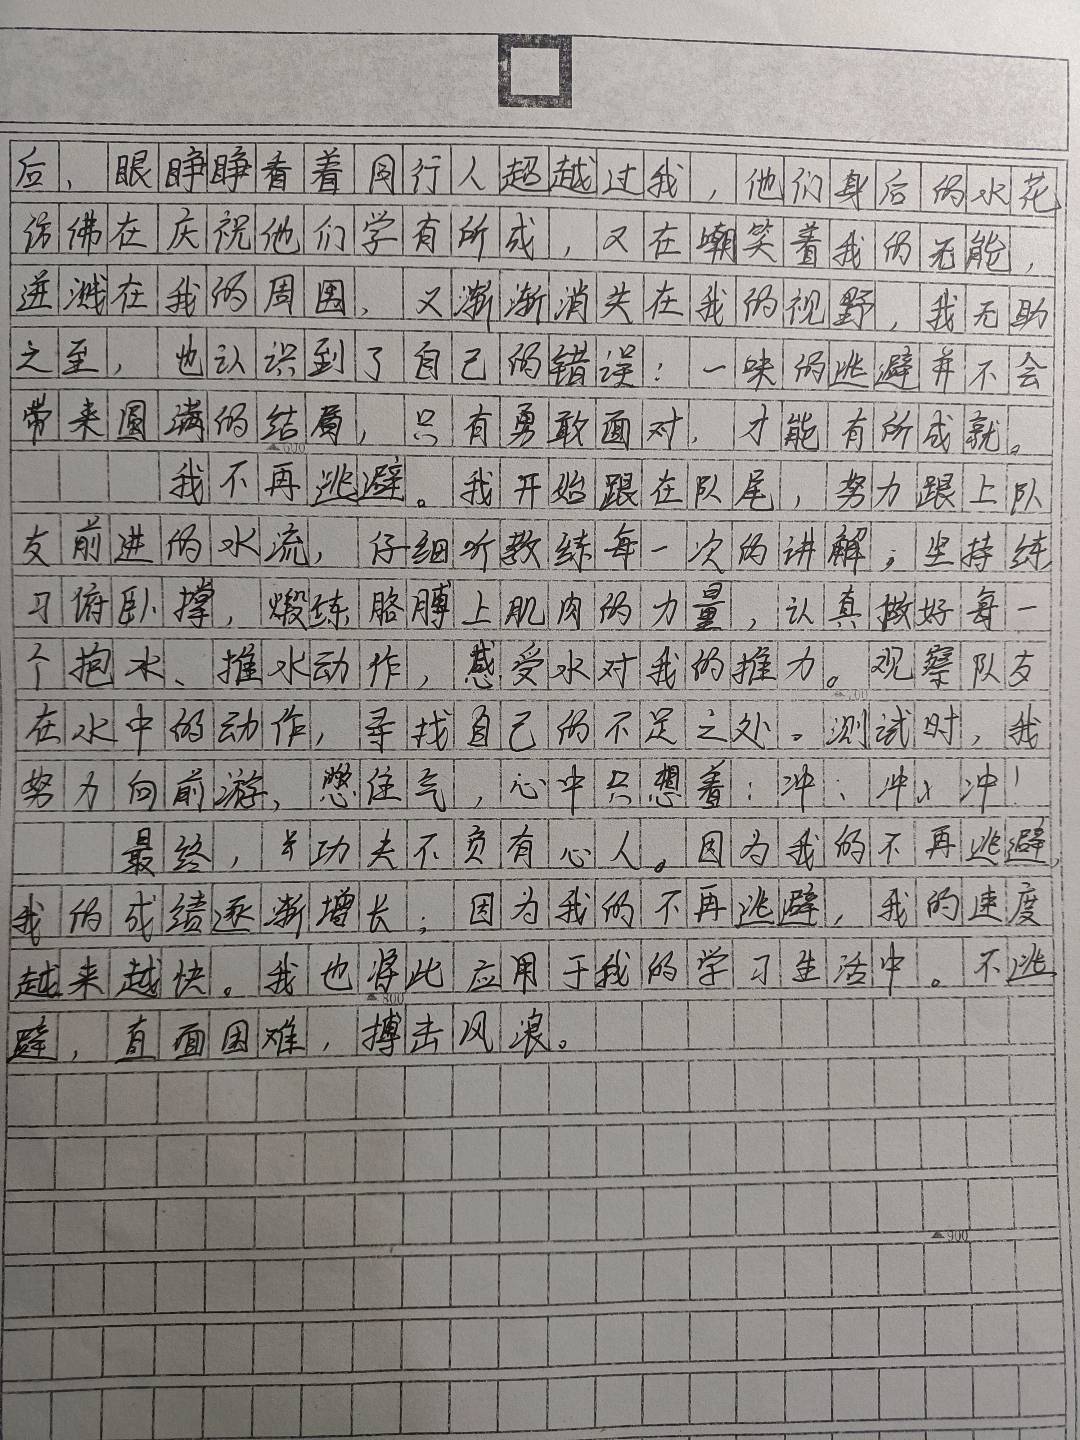 后，眼睁睁看着同行人超越过我，他们身后的水花
仿佛在庆祝他们学有所成，又在嘲笑着我的无能，
迸溅在我的周围，又渐渐消失在我的视野，我无助
之至，也认识到了自己的错误：一味的逃避并不会
带来圆满的结局，只有勇敢面对，才能有所成就。
600
我不再逃避。我开始跟在队尾，努力跟上队
友前进的水流，仔细听教练每一次的讲解；坚持练
习俯卧撑，煅练胳膊上肌肉的力量，认真做好每一
个抱水、推水动作，感受水对我的推力。观察队友
700
在水中的动作，寻找自己的不足之处。测试时，我
努力向前游，憋住气，心中只想着：冲、冲、冲！
最终，功夫不负有心人。因为我的不再逃避，
我的成绩逐渐增长；因为我的不再逃避，我的速度
越来越快。我也将此应用于我的学习生活中。不逃
800
避，直面困难，搏击风浪。
900